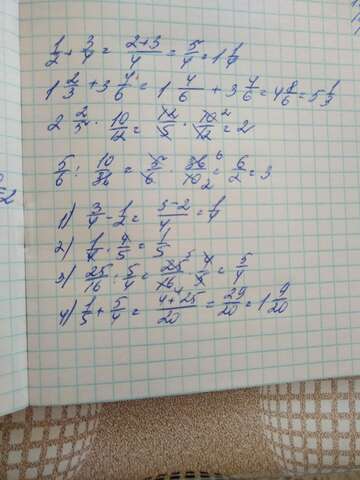 1/2 + 3/4 = 2+3/4 = 5/4 = 1 1/4
1 2/3 + 3 4/6 = 1 4/6 + 3 4/6 = 4 8/6 = 5 1/3
2 2/5 · 10/12 = 12/5 · 10/12 2 = 2
5/6 : 10/36 = 5/6 · 36/10 6 2 = 6/2 = 3
1) 3/4 - 1/2 = 3-2/4 = 1/4
2) 1/4 · 4/5 = 1/5
3) 25/16 : 5/4 = 25/16 5 · 4/5 = 5/4
4) 1/5 + 5/4 = 4+25/20 = 29/20 = 1 9/20